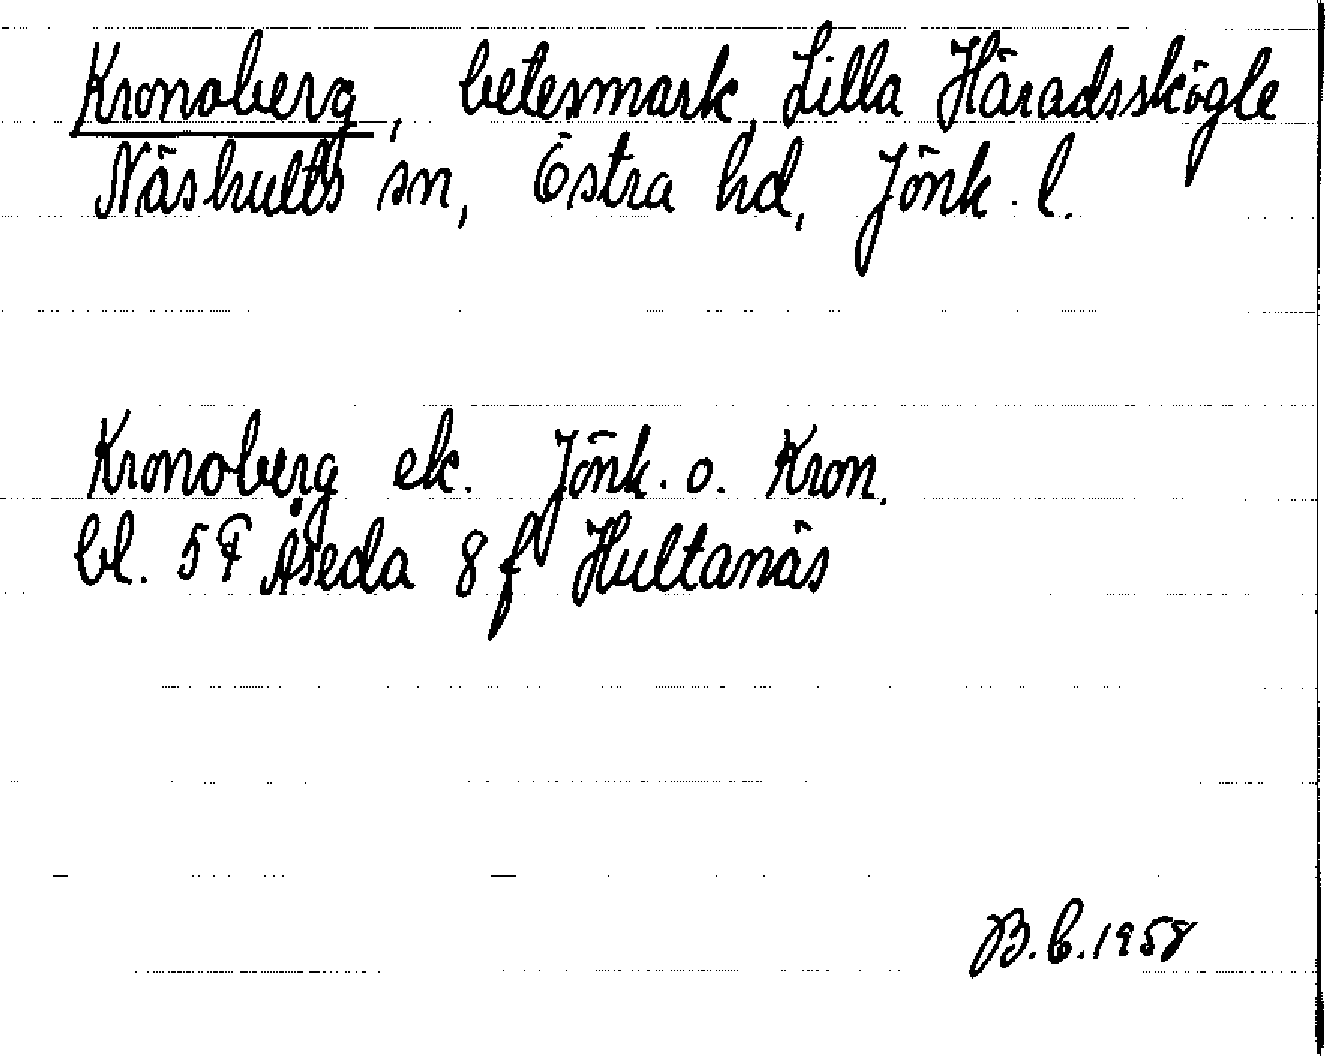 Kronoberg, betesmark, Lilla Häradsskögle
Näshults sn, Östra hd, Jönk. l.
Kronoberg ek. Jönk. o. Kron.
bl. 5 F Åseda 8 f Hultanäs
B.C.1958